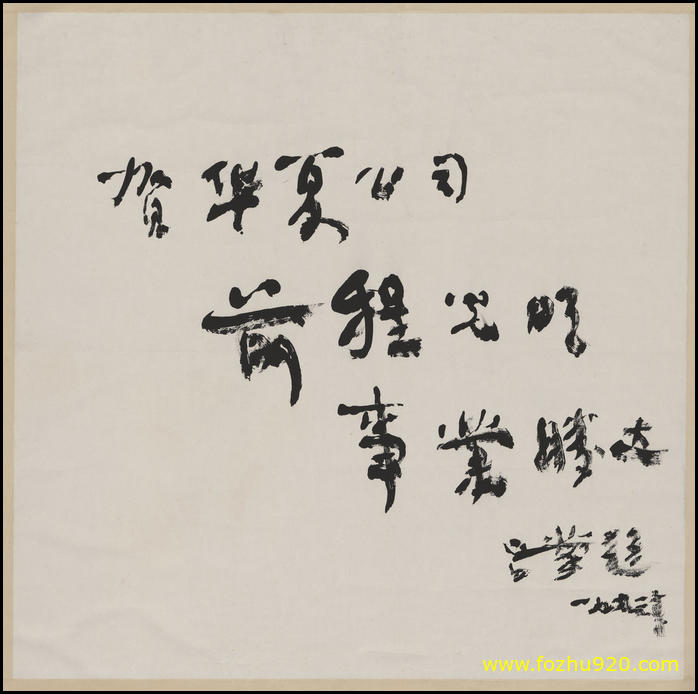 贺华夏公司
前程光明
事業勝
吕蒙題
一九九三年
www.fozhu920.com